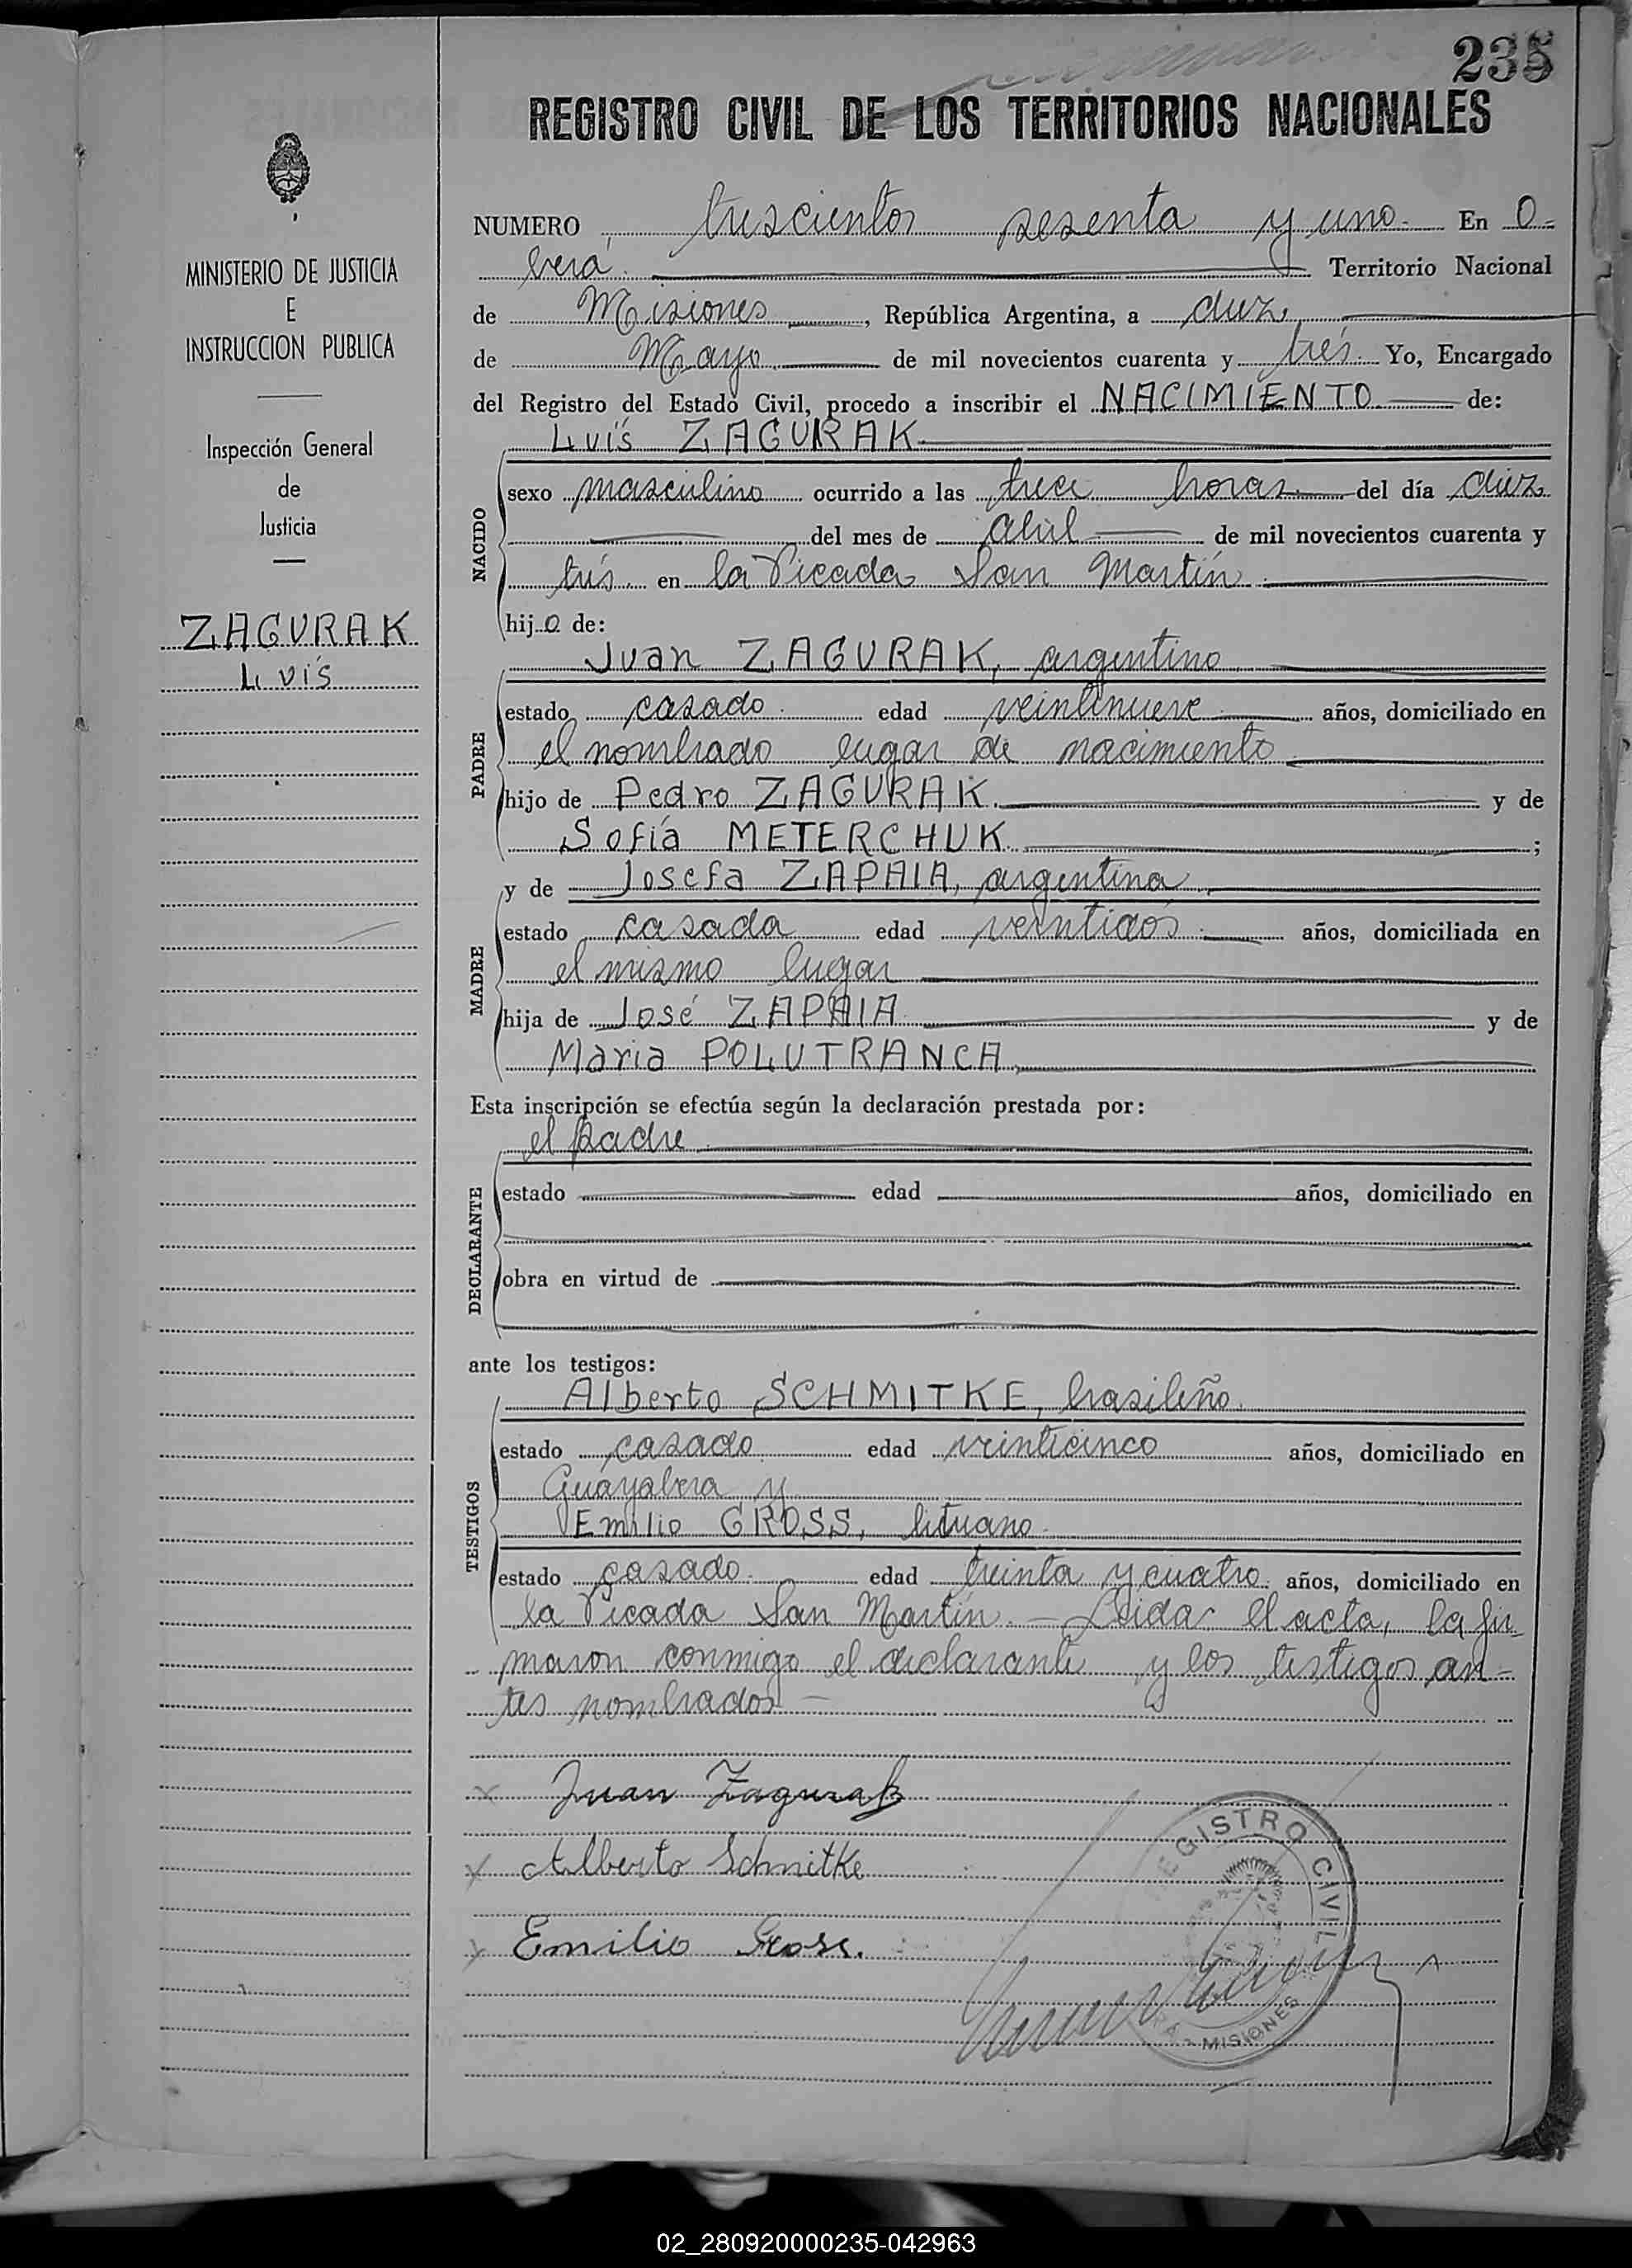 235
REGISTRO CIVIL DE LOS TERRITORIOS NACIONALES
MINISTERIO DE JUSTICIA
E
INSTRUCCION PUBLICA
Inspección General
de
Justicia
ZAGURAK
Luís
NUMERO trescientos sesenta y uno. En O-
berá. Territorio Nacional
de Misiones, República Argentina, a diez
de Mayo de mil novecientos cuarenta y trés. Yo, Encargado
del Registro del Estado Civil, procedo a inscribir el NACIMIENTO de:
Luís ZAGURAK.
NACIDO
sexo masculino ocurrido a las trece horas del día diez
del mes de abril de mil novecientos cuarenta y
trés en la Picada San Martín
hijo de:
Juan ZAGURAK, argentino
PADRE
estado casado edad veintinueve años, domiciliado en
el nombrado lugar de nacimiento
hijo de Pedro ZAGURAK. y de
Sofía METERCHUK. ;
y de Josefa ZAPAIA, argentina
MADRE
estado casada edad veintidós años, domiciliada en
el mismo lugar
hija de José ZAPAIA y de
Maria POLUTRANCA
Esta inscripción se efectúa según la declaración prestada por:
el padre
DECLARANTE
estado edad años, domiciliado en
obra en virtud de
ante los testigos:
Alberto SCHMITKE, brasileño.
TESTIGOS
estado casado edad veinticinco años, domiciliado en
Guayabera y
Emilio GROSS, lituano.
estado casado. edad treinta y cuatro años, domiciliado en
la Picada San Martín. — Leida el acta, la fir-
maron conmigo el declarante y los testigos an-
tes nombrados —
x Juan Zagurak
x Alberto Schmitke
x Emilio Gross.
REGISTRO CIVIL
MISIONES
02_280920000235-042963